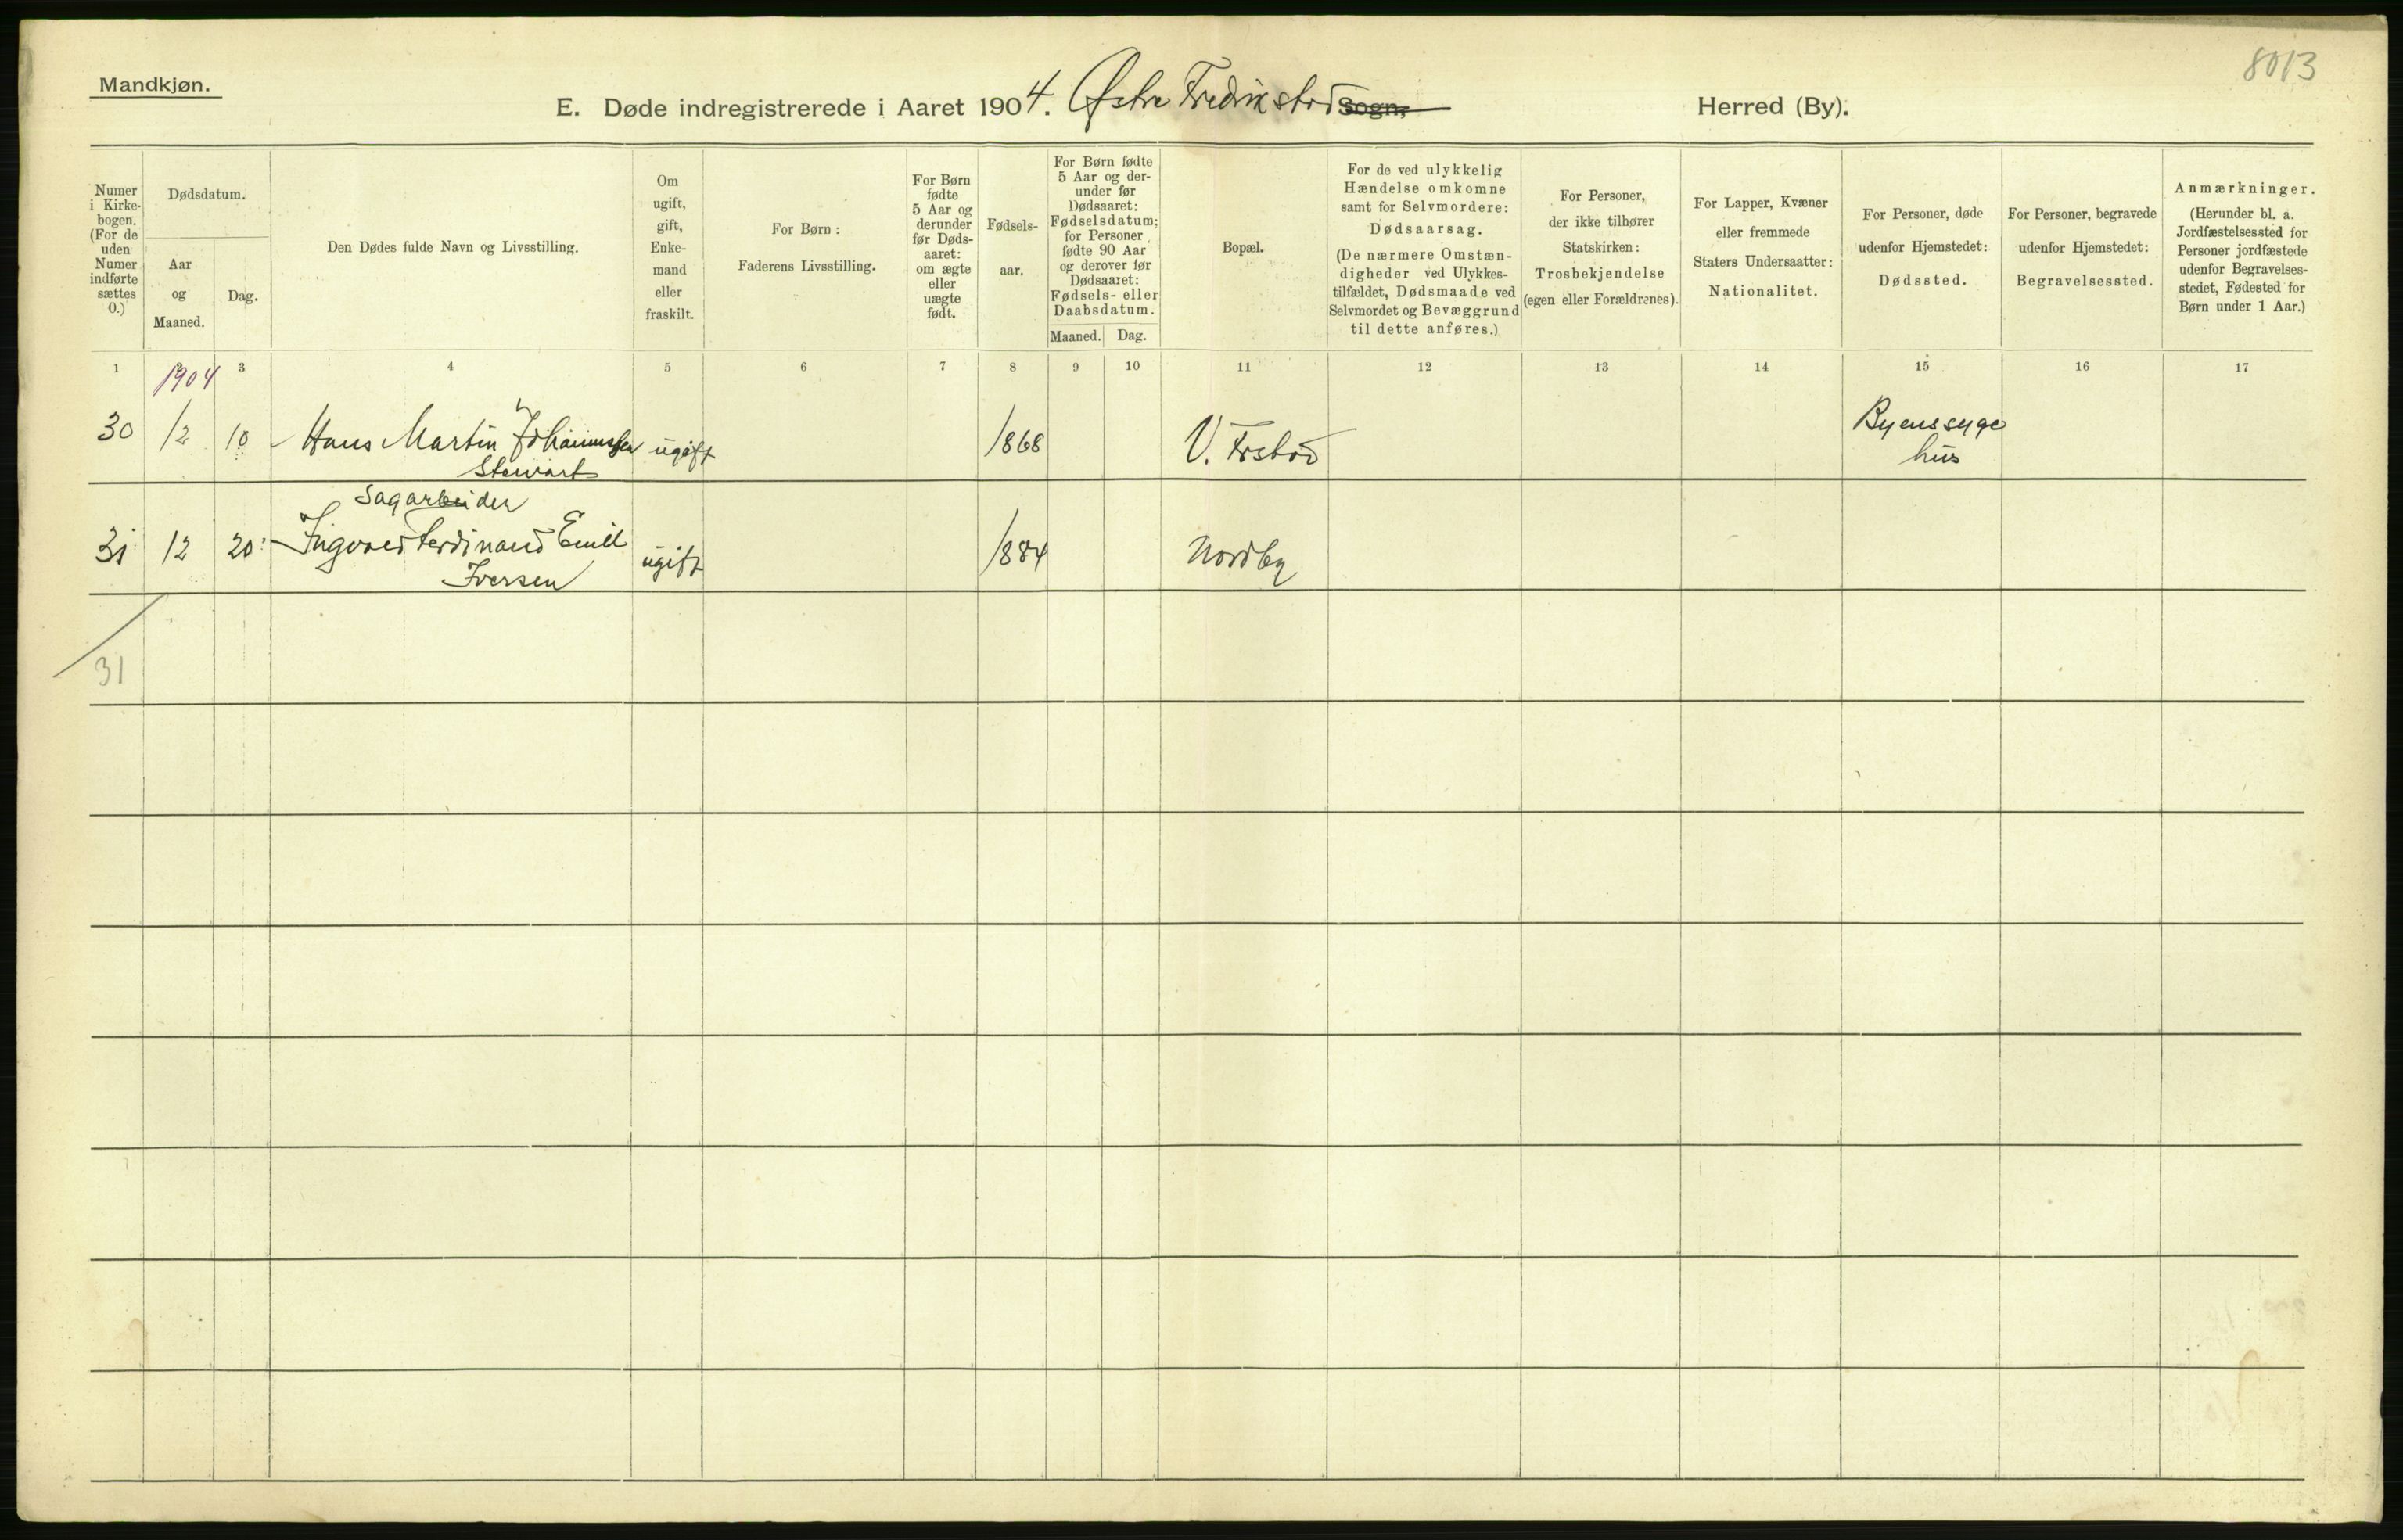 8013
Mandkjøn.
E. Døde indregistrerede i Aaret 1904. Østre Fredrikstad Sogn, Herred (By).
Numer i Kirkebogen. (For de uden Numer indførte sættes 0.)
Dødsdatum.
Aar og Maaned.
Dag.
Den Dødes fulde Navn og Livsstilling.
Om ugift, gift, Enkemand eller fraskilt.
For Børn: Faderens Livsstilling.
For Børn fødte 5 Aar og derunder før Dødsaaret: om ægte eller uægte født.
Fødselsaar.
For Børn fødte 5 Aar og derunder før Dødsaaret: Fødselsdatum; for Personer fødte 90 Aar og derover før Dødsaaret: Fødsels- eller Daabsdatum.
Maaned. Dag.
Bopæl.
For de ved ulykkelig Hændelse omkomne samt for Selvmordere: Dødsaarsag. (De nærmere Omstændigheder ved Ulykkestilfældet, Dødsmaade ved Selvmordet og Bevæggrund til dette anføres.)
For Personer, der ikke tilhører Statskirken: Trosbekjendelse (egen eller Forældrenes).
For Lapper, Kvæner eller fremmede Staters Undersaatter: Nationalitet.
For Personer, døde udenfor Hjemstedet: Dødssted.
For Personer, begravede udenfor Hjemstedet: Begravelsessted.
Anmærkninger. (Herunder bl. a. Jordfæstelsessted for Personer jordfæstede udenfor Begravelsesstedet, Fødested for Børn under 1 Aar.)
1 2 3 4 5 6 7 8 9 10 11 12 13 14 15 16 17
1904
30 12 10 Hans Martin Johannessen ugift 1868 V. Frstad Byens syge
Stewart hus
Sagarbeider
31 12 20 Ingvard Ferdinand Emil ugift 1884 Nordby
Iversen
31